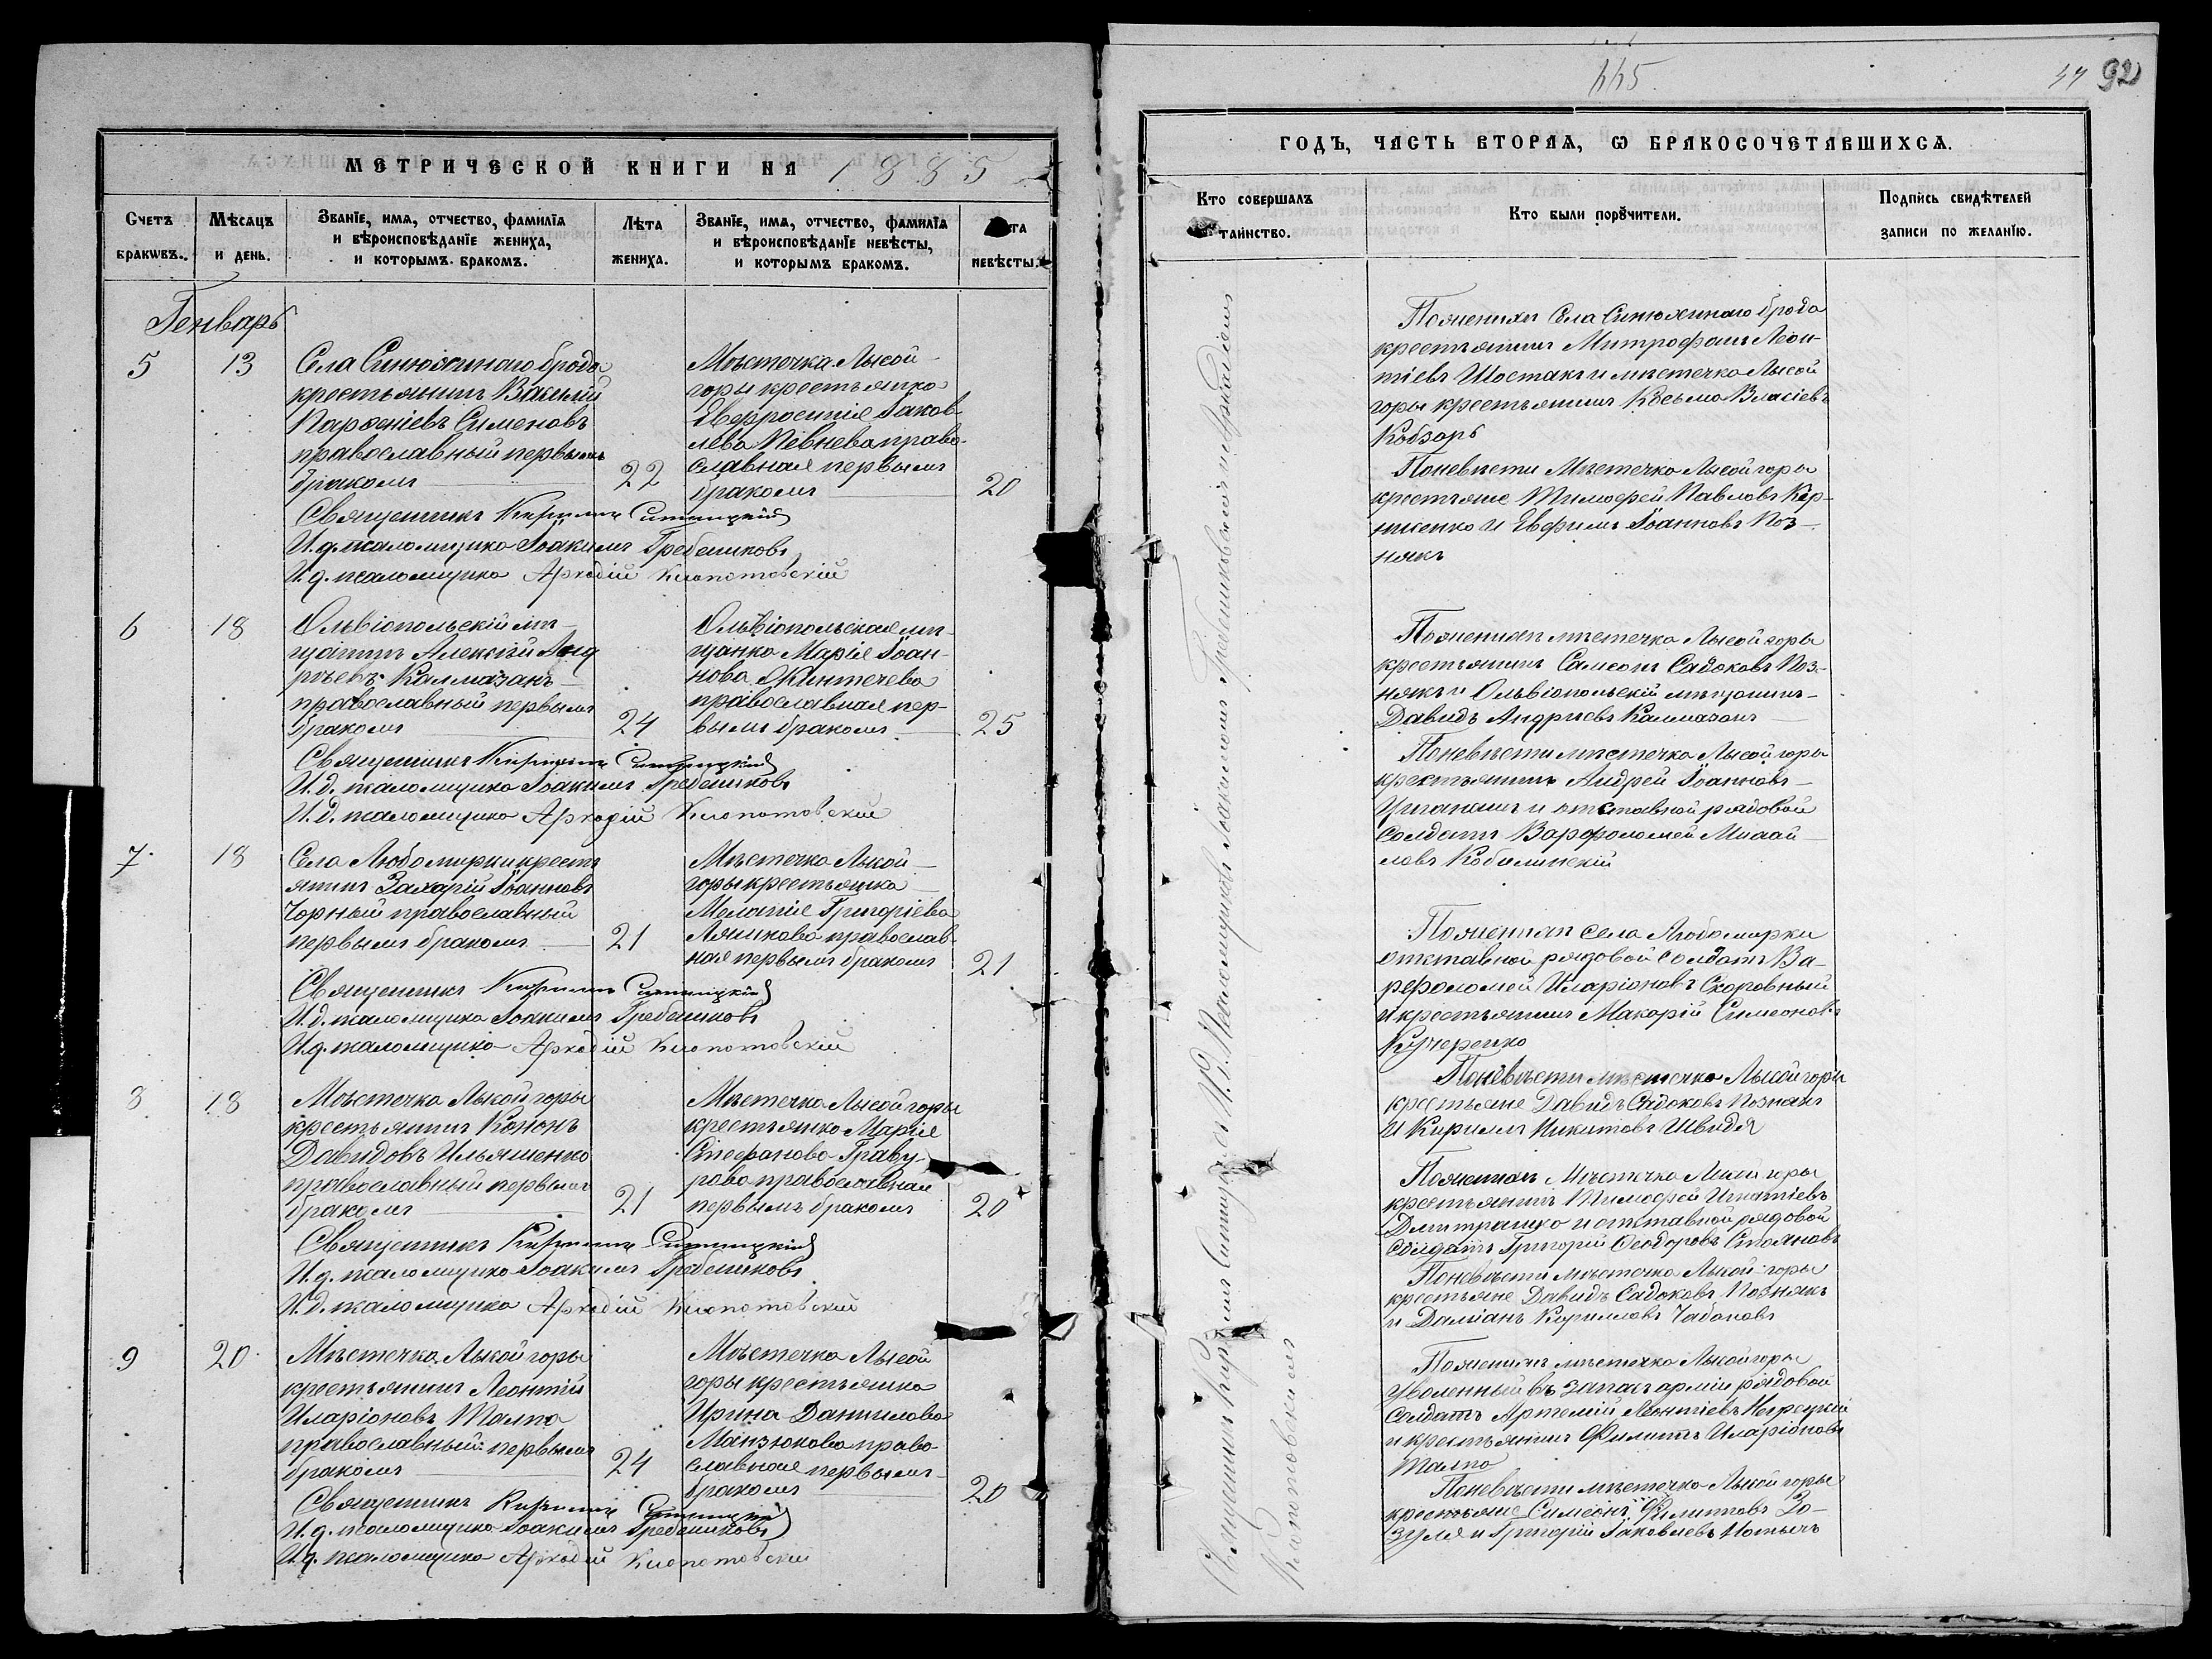 МЕТРИЧЕСКОЙ КНИГИ НА 1885
Счетъ браковъ.
Мѣсяцъ и день.
Званіе, имя, отчество, фамилія
и вѣроисповѣданіе жениха,
и которымъ бракомъ.
Лѣта
жениха.
Званіе, имя, отчество, фамилія
и вѣроисповѣданіе невѣсты,
и которымъ бракомъ.
невѣсты.
Генварь
5
13
Села Синюхинаго брода
крестьянинъ Василій
Парѳеніевъ Сименовъ
православный первымъ
бракомъ
22
Мѣстечка Лысой
горы крестьянка
Евфросинія Іаков-
лева Певнева право-
славная первымъ
бракомъ
20
Священникъ Кириллъ
И. д. псаломщика Іоакимъ Гребенниковъ
И. д. псаломщика Аркадій Клопотовскій
6
18
Ольвіопольскій мѣ-
щанинъ Алексѣй Анд
рѣевъ Калмазанъ
православный первымъ
бракомъ
24
Ольвіопольская мѣ-
щанка Марія Іоан-
нова Жинтечева
православная пер-
вымъ бракомъ
25
Священникъ Кириллъ
И. д. псаломщика Іоакимъ Гребенниковъ
И. д. псаломщика Аркадій Клопотовскій
7
18
Села Любомирки крестъ
янинъ Захарій Іоанновъ
Чорный православный
первымъ бракомъ
21
Мѣстечка Лысой
горы крестьянка
Меланія Григоріева
Ляшкова православ-
ная первымъ бракомъ
21
Священникъ Кириллъ
И. д. псаломщика Іоакимъ Гребенниковъ
И. д. псаломщика Аркадій Клопотовскій
8
18
Мѣстечка Лысой горы
крестьянинъ Кононъ
Давидовъ Ильяшенко
православный первымъ
бракомъ
21
Мѣстечка Лысой горы
крестьянка Марія
Стефанова Граву-
рова православная
первымъ бракомъ
20
Священникъ Кириллъ
И. д. псаломщика Іоакимъ Гребенниковъ
И. д. псаломщика Аркадій Клопотовскій
9
20
Мѣстечка Лысой горы
крестьянинъ Леонтій
Иларіоновъ Талпа
православный первымъ
бракомъ
24
Мѣстечка Лысой
горы крестьянка
Ирина Данилова
Манзюкова право-
славная первымъ
бракомъ
20
Священникъ Кириллъ
И. д. псаломщика Іоакимъ Гребенниковъ
И. д. псаломщика Аркадій Клопотовскій
92
ГОДЪ, ЧАСТЬ ВТОРАЯ, Ѡ БРАКОСОЧЕТАВШИХСЯ.
Кто совершалъ
таинство.
Кто были поручители.
Подпись свидѣтелей
записи по желанію.
Священникъ Кириллъ и И. д. Псаломщиковъ Іоакимомъ Гребенниковымъ и Аркадіемъ
Клопотовскимъ
По женихѣ Села Синюхинаго брода
крестьянинъ Митрофанъ Леон-
тіевъ Шостакъ и мѣстечка Лысой
горы крестьянинъ Косьма Власіевъ
Кобзарь
По невѣсти Мѣстечка Лысой горы
крестьяне Тимофей Павловъ Кор-
ниенко и Евфимъ Іоанновъ Поз-
някъ
По женихѣ мѣстечка Лысой горы
крестьянинъ Самсонъ Садоковъ Поз-
някъ и Ольвіопольскій мѣщанинъ
Давидъ Андрѣевъ Калмазанъ
По невѣсти мѣстечка Лысой горы
крестьянинъ Андрей Іоанновъ
и отставной рядовой
солдатъ Варфоломей Михай-
ловъ Кобилинскій
По женихѣ села Любомирки
отставной рядовой солдатъ Ва-
рфоломей Иларіоновъ Скоровный
и крестьянинъ Макарій Симеоновъ
Кучеренко
По невѣсти мѣстечка Лысой горы
крестьяне Давидъ Садоковъ Познякъ
и Кириллъ Никитовъ Швидя
По женихѣ Мѣстечка Лысой горы
крестьянинъ Тимофей Игнатіевъ
Дмитрашко и отставной рядовой
солдатъ Григорій Ѳеодоровъ Стояновъ
По невѣсти мѣстечка Лысой горы
крестьяне Давидъ Садоковъ Познякъ
и Даміанъ Кирилловъ Чабановъ
По женихѣ мѣстечка Лысой горы
уволенный въ запасъ арміи рядовой
Солдатъ Артемій Леонтіевъ Негрецкій
и крестьянинъ Филиппъ Иларіоновъ
Талпа
По невѣсти мѣстечка Лысой горы
крестьяне Симеонъ Филипповъ Зо-
зуля и Григорій Іаковлевъ